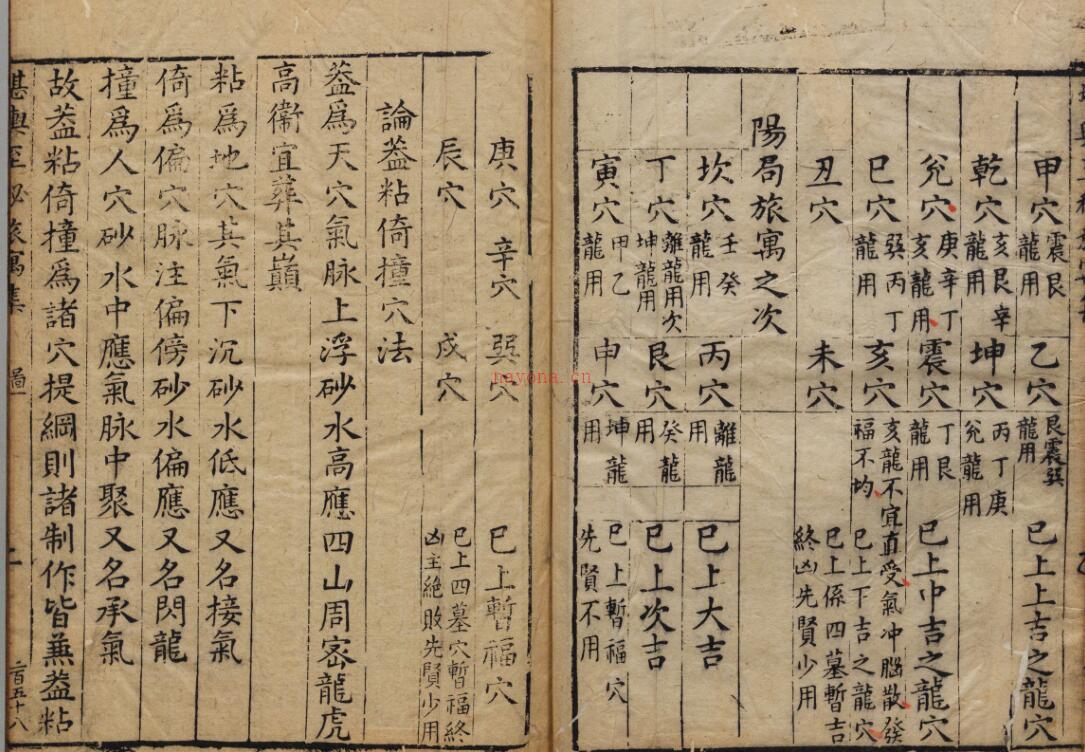 甲穴 震艮龍用 乙穴 艮震巽龍用 已上上吉之龍穴
乾穴 亥艮辛龍用 坤穴 丙丁庚兊龍用
兊穴 庚辛丁亥龍用 震穴 丁艮龍用 已上中吉之龍穴
巳穴 巽丙丁龍用 亥穴 亥龍不宜直受氣冲腦散發福不均 已上下吉之龍穴
丑穴 未穴 已上係四墓暫吉終凶先賢少用
陽局旅寓之次
坎穴 壬癸龍用 丙穴 離龍用 已上大吉
丁穴 離龍用次坤龍用 艮穴 癸龍用 已上次吉
寅穴 甲乙龍用 申穴 坤龍用 已上暫福穴先賢不用
庚穴 辛穴 巽穴 已上暫福穴
辰穴 戍穴 已上四墓穴暫福終凶主絶敗先賢少用
論葢粘倚撞穴法
葢爲天穴氣脉上浮砂水髙應四山周宻龍虎
髙衛宜葬其巔
粘爲地穴其氣下沉砂水低應又名接氣
倚爲偏穴脉注偏傍砂水偏應又名閃龍
撞爲人穴砂水中應氣脉中聚又名承氣
故葢粘倚撞爲諸穴提綱則諸制作皆兼葢粘
堪輿至秘旅寓集 二百五十八
nayona.cn